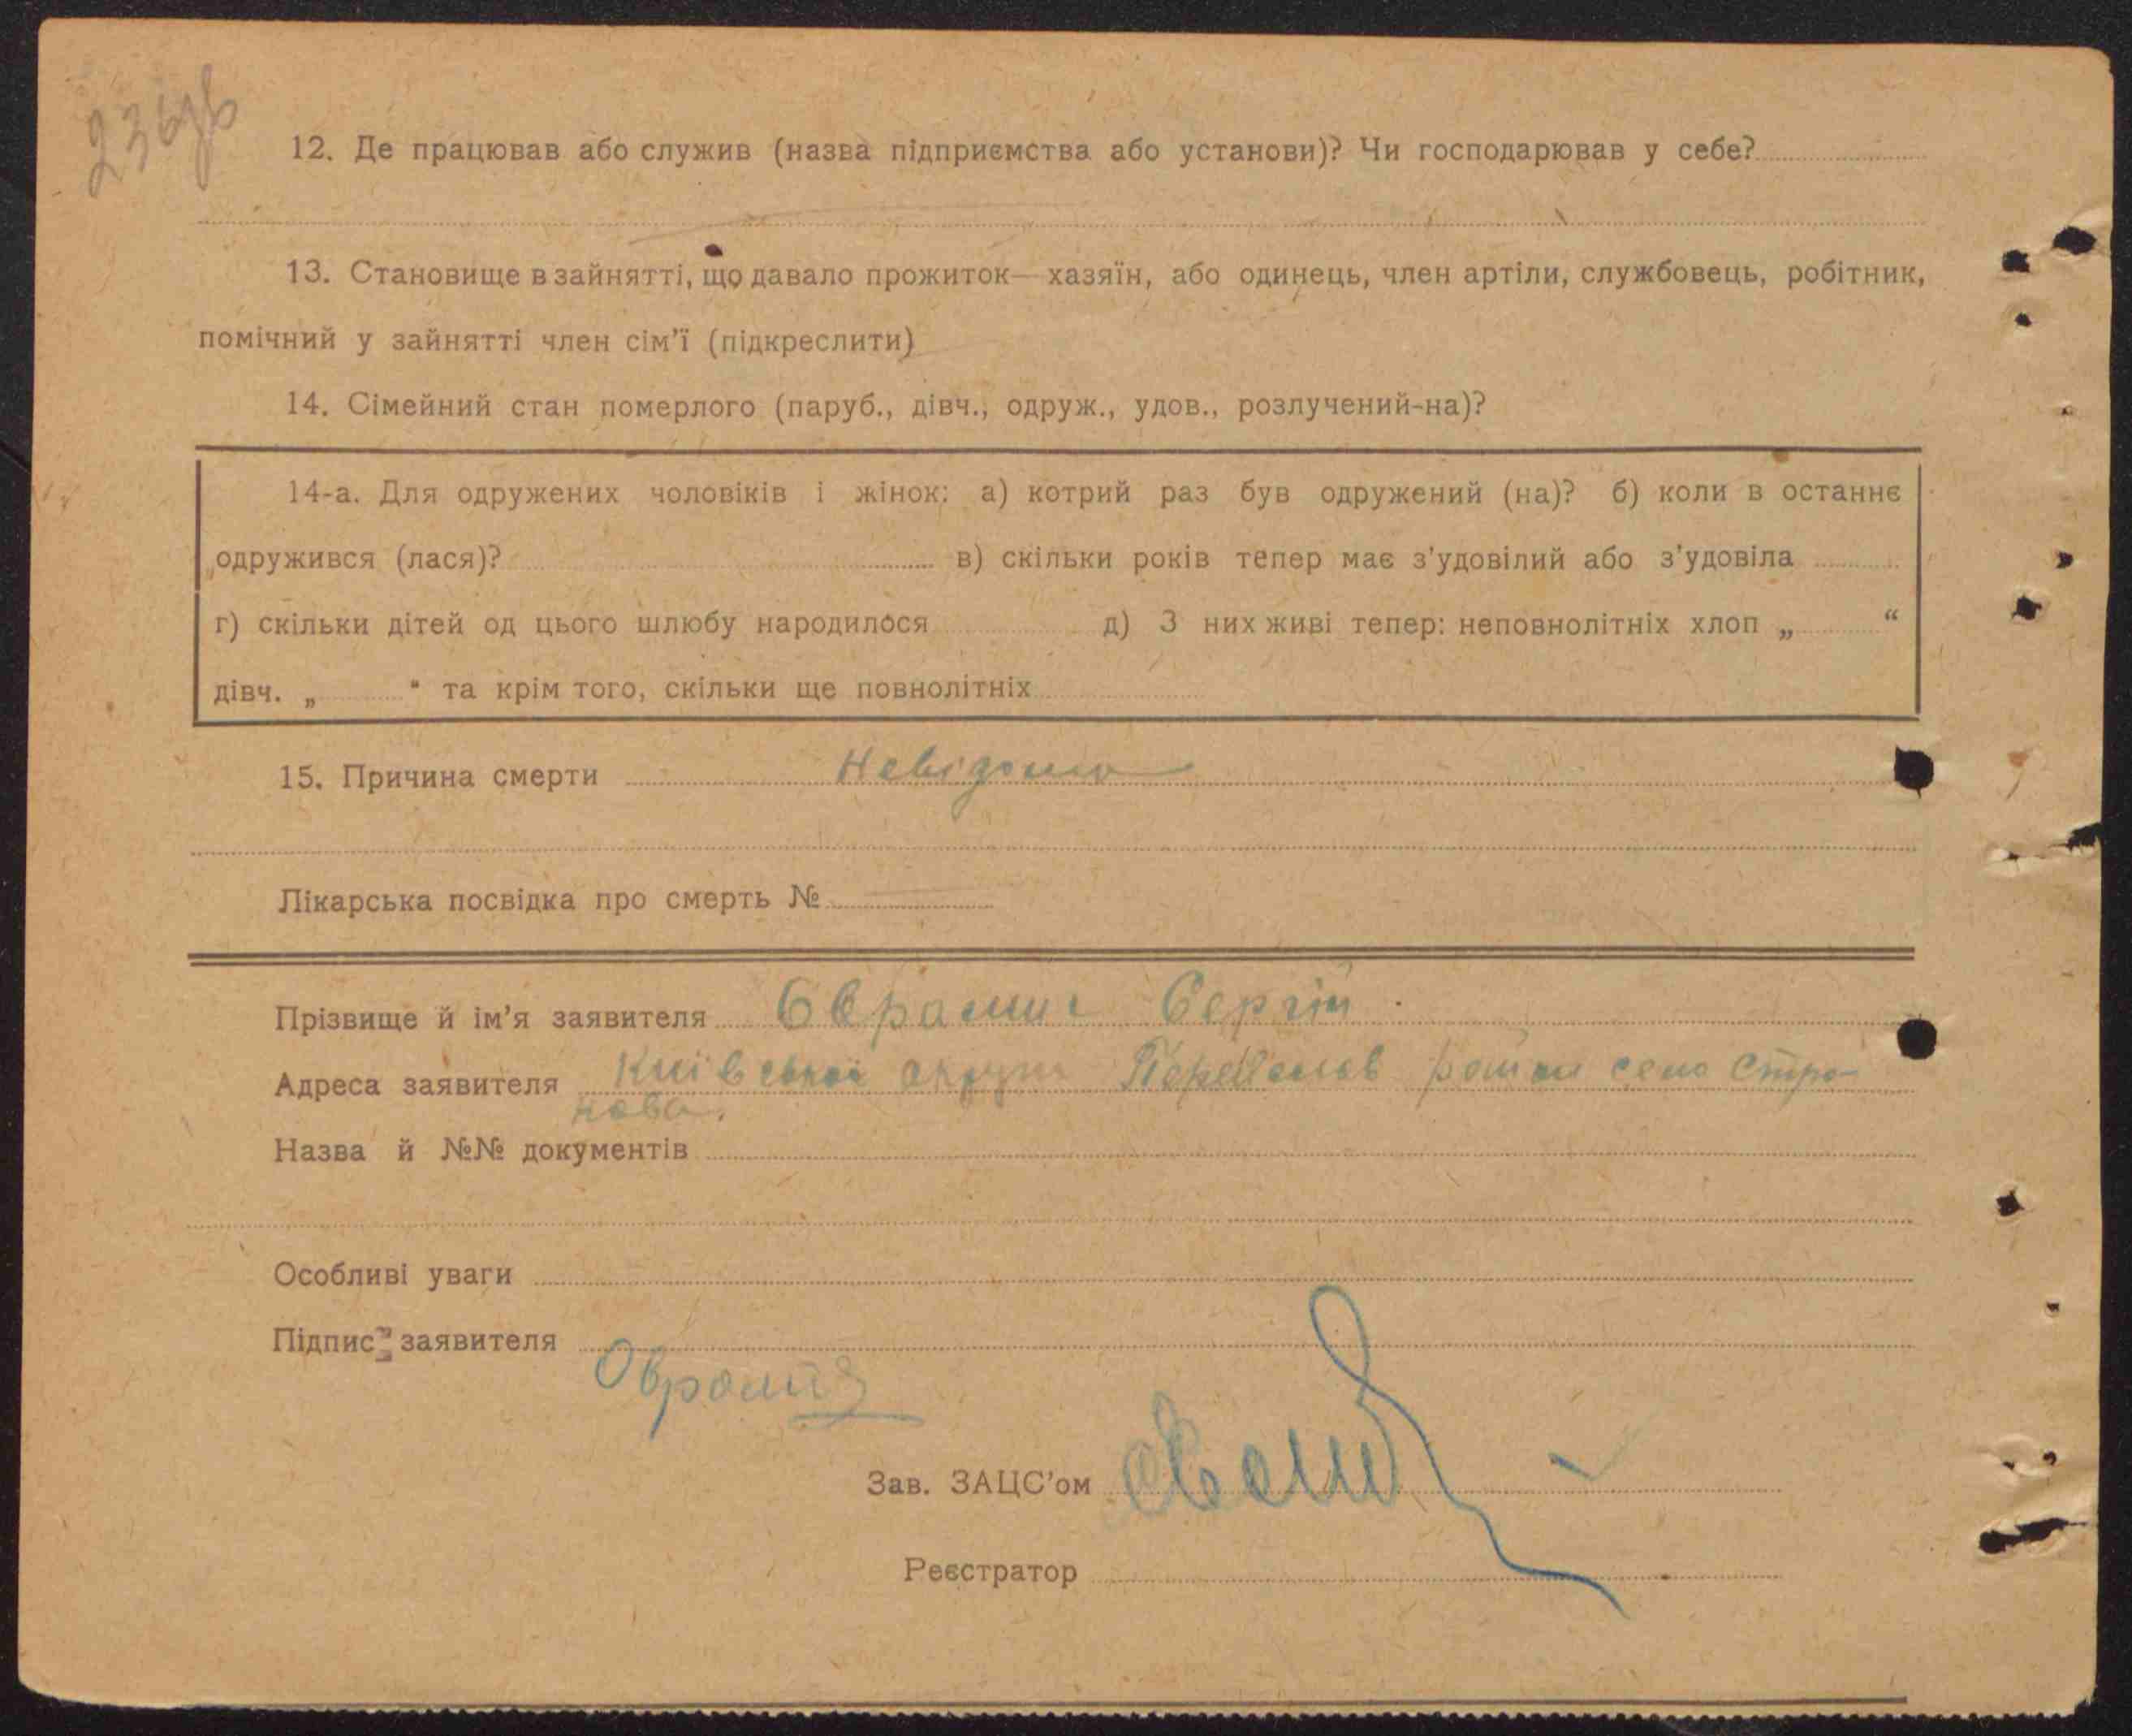 236
12. Де працював або служив (назва підприємства або установи)? Чи господарював у себе?
13. Становище в зайнятті, що давало прожиток— хазяїн, або одинець, член артіли, службовець, робітник,
помічний у зайнятті член сім'ї (підкреслити)
14. Сімейний стан померлого (паруб., дівч., одруж., удов., розлучений-на)?
14-а. Для одружених чоловіків і жінок: а) котрий раз був одружений (на)? б) коли в останнє
одружився (лася)? в) скільки років тепер має з'удовілий або з'удовіла
г) скільки дітей од цього шлюбу народилося д) З них живі тепер: неповнолітніх хлоп „ “
дівч. „ “ та крім того, скільки ще повнолітніх
15. Причина смерти Невідомо
Лікарська посвідка про смерть №
Прізвище й ім'я заявителя Сергій
Адреса заявителя Київської округи район село Стро-
кова.
Назва й №№ документів
Особливі уваги
Підпис заявителя
Зав. ЗАЦС'ом
Реєстратор